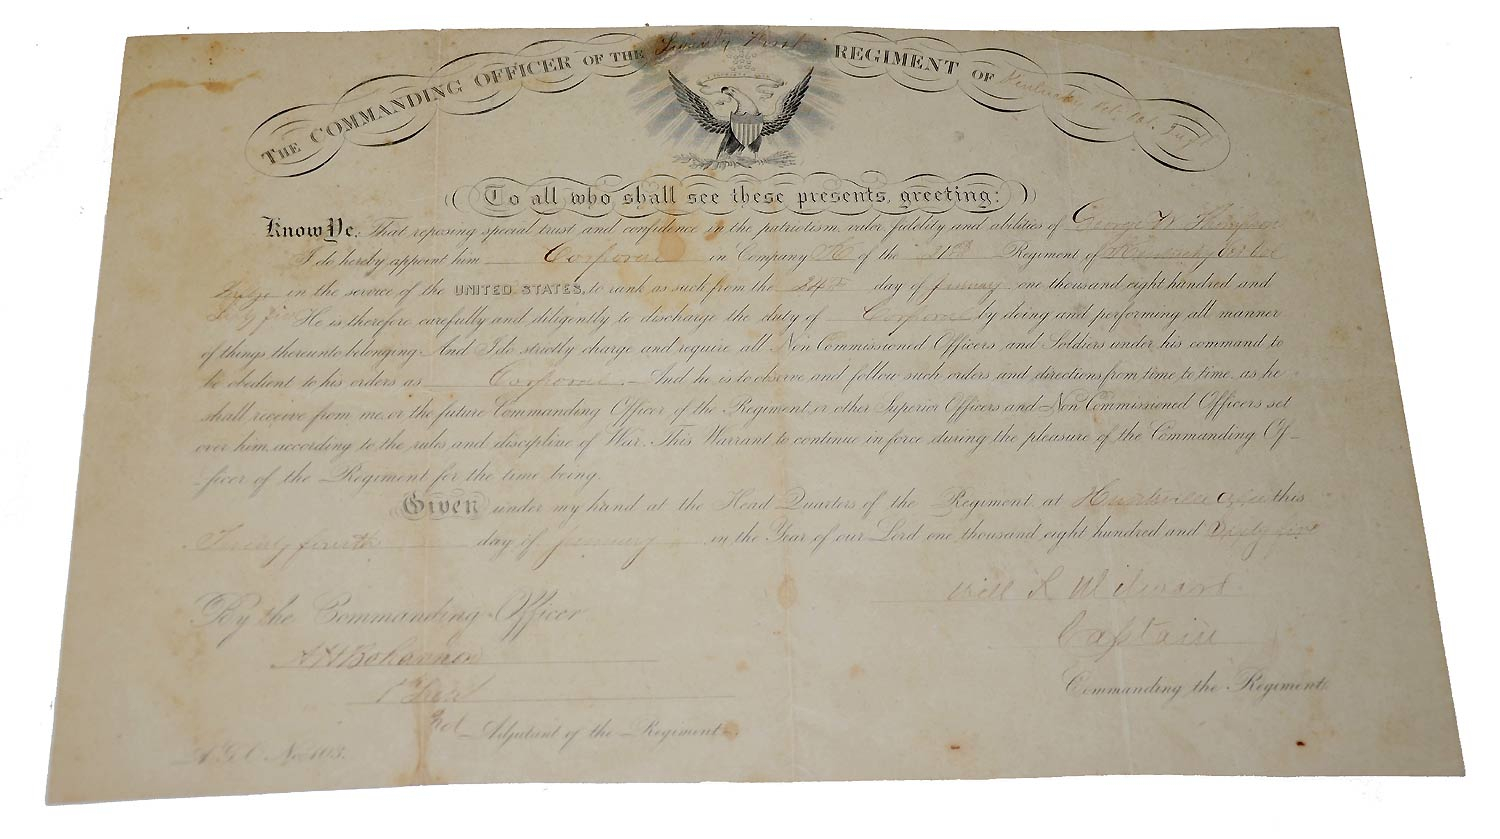 THE COMMANDING OFFICER OF THE Twenty First REGIMENT OF Kentucky Vet. Vol. Inft
To all who shall see these presents, greeting:
Know Ye, That reposing special trust and confidence in the patriotism, valor, fidelity and abilities of George W Thompson
I do hereby appoint him Corporal in Company K of the 21st Regiment of Kentucky Vet Vol
in the service of the UNITED STATES, to rank as such from the 24th day of January one thousand eight hundred and
Sixty five He is therefore carefully and diligently to discharge the duty of Corporal by doing and performing all manner
of things thereunto belonging. And I do strictly charge and require all Non Commissioned Officers and Soldiers under his command to
be obedient to his orders as Corporal. And he is to observe and follow such orders and directions from time to time, as he
shall receive from me, or the future Commanding Officer of the Regiment, or other Superior Officers and Non Commissioned Officers set
over him, according to the rules and discipline of War. This Warrant to continue in force during the pleasure of the Commanding Of-
-ficer of the Regiment for the time being.
Given under my hand at the Head Quarters of the Regiment at Huntsville Ala this
Twenty fourth day of January in the Year of our Lord one thousand eight hundred and Sixty five
Will R Milward
By the Commanding Officer
Captain
A H Bohannon
Commanding the Regiment.
1st Lieut
Adjutant of the Regiment.
A.G.O. No. 103.